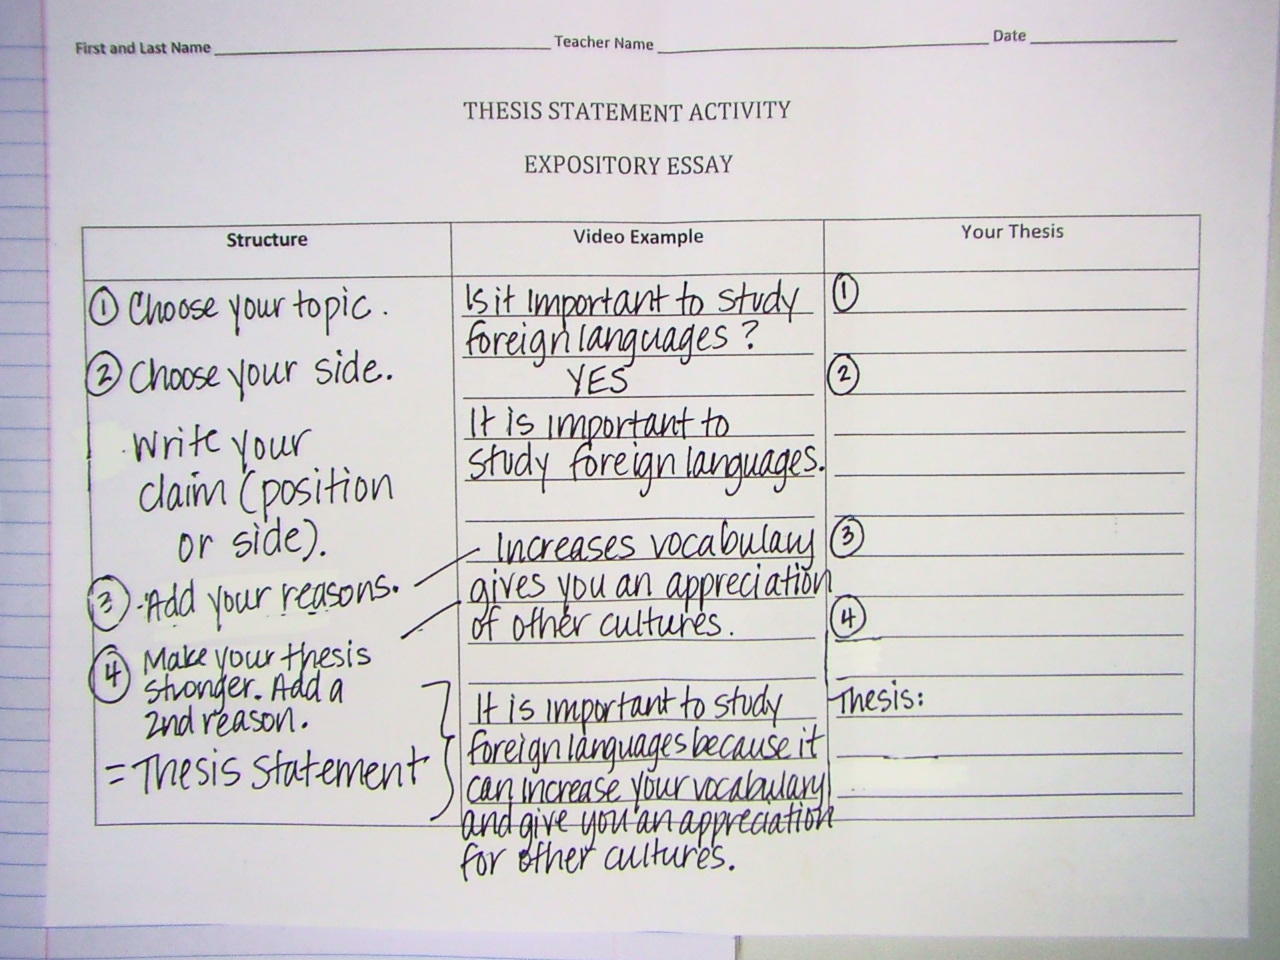 First and Last Name ____ Teacher Name ____ Date ____
THESIS STATEMENT ACTIVITY
EXPOSITORY ESSAY
Structure
① Choose your topic.
② Choose your side.
Write your
claim (position
or side).
③ -Add your reasons.
④ Make your thesis
stronger. Add a
2nd reason.
= Thesis Statement
Video Example
Is it important to study
foreign languages?
YES
It is important to
study foreign languages.
Increases vocabulary
gives you an appreciation
of other cultures.
It is important to study
foreign languages because it
can increase your vocabulary
and give you an appreciation
for other cultures.
Your Thesis
①
②
③
④
Thesis: